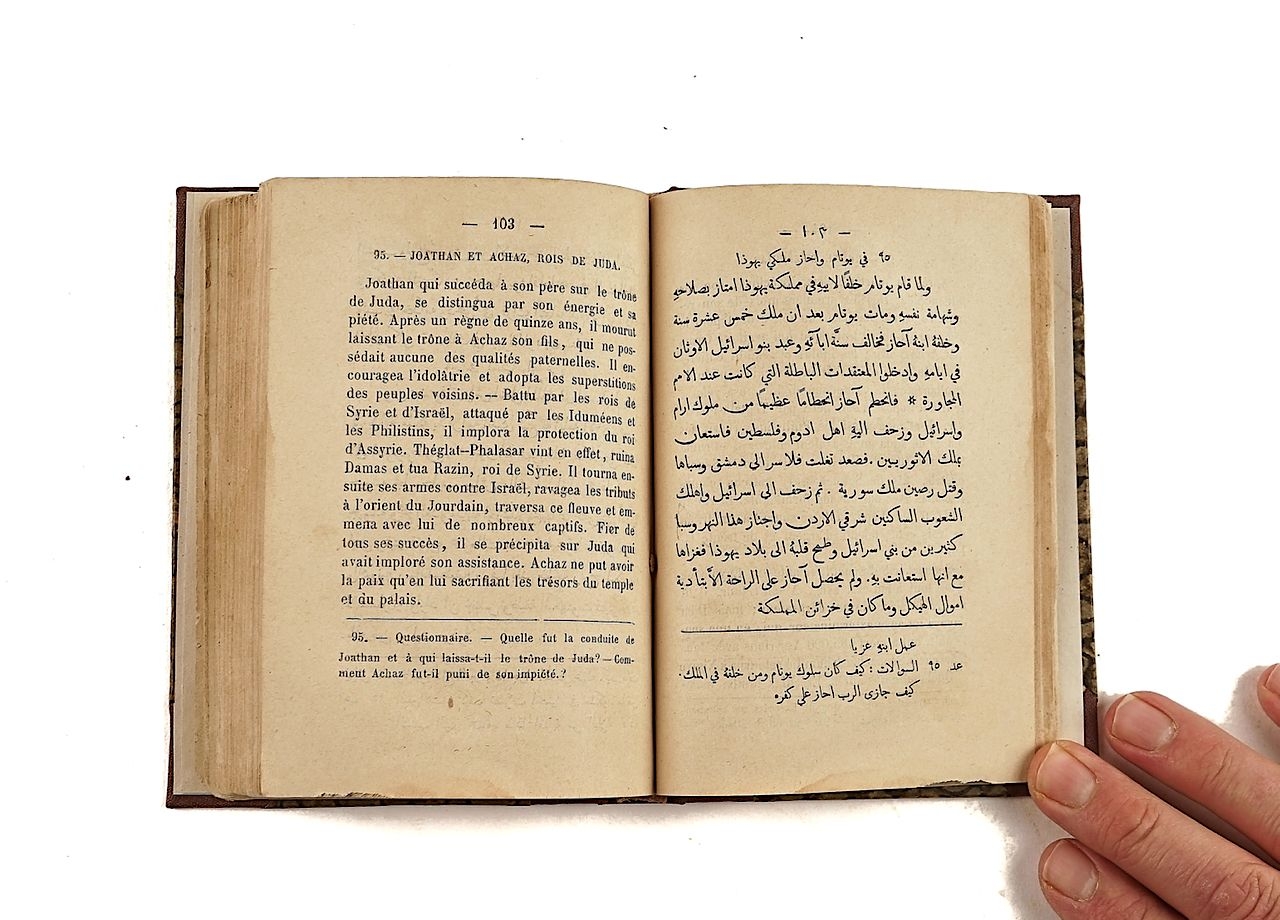 — 103 —
95. — JOATHAN ET ACHAZ, ROIS DE JUDA.
Joathan qui succéda à son père sur le trône
de Juda, se distingua par son énergie et sa
piété. Après un règne de quinze ans, il mourut
laissant le trône à Achaz son fils, qui ne pos-
sédait aucune des qualités paternelles. Il en-
couragea l'idolâtrie et adopta les superstitions
des peuples voisins. — Battu par les rois de
Syrie et d'Israël, attaqué par les Iduméens et
les Philistins, il implora la protection du roi
d'Assyrie. Théglat-Phalasar vint en effet, ruina
Damas et tua Razin, roi de Syrie. Il tourna en-
suite ses armes contre Israël, ravagea les tributs
à l'orient du Jourdain, traversa ce fleuve et em-
mena avec lui de nombreux captifs. Fier de
tous ses succès, il se précipita sur Juda qui
avait imploré son assistance. Achaz ne put avoir
la paix qu'en lui sacrifiant les trésors du temple
et du palais.
95. — Questionnaire. — Quelle fut la conduite de
Joathan et à qui laissa-t-il le trône de Juda? — Com-
ment Achaz fut-il puni de son impiété.?
— ١٠٣ —
٩٥ في يوتام واحاز ملكي يهوذا
ولما قام يوتام خلفًا لابيهِ في مملكة يهوذا امتاز بصلاحهِ
وشهامة نفسهِ ومات يوتام بعد ان ملك خمس عشرة سنة
وخلفهُ ابنهُ آحاز فخالف سنَّة ابآئهِ وعبد بنو اسرائيل الاوثان
في ايامهِ وادخلوا المعتقدات الباطلة التي كانت عند الامم
المجاورة * فانحطم آحاز انحطامًا عظيمًا من ملوك ارام
واسرائيل وزحف اليهِ اهل ادوم وفلسطين فاستعان
بملك الاثوريين. فصعد تغلت فلاسر الى دمشق وسباها
وقتل رصين ملك سورية . ثم زحف الى اسرائيل واهلك
الشعوب الساكنين شرقي الاردن واجتاز هذا النهر وسبا
كثيرين من بني اسرائيل وطمح قلبهُ الى بلاد يهوذا فغزاها
مع انها استعانت بهِ. ولم يحصل آحاز على الراحة الَّا بتأدية
اموال الهيكل وما كان في خزائن المملكة
عمل ابنهِ عزيا
عد ٩٥ السوالات : كيف كان سلوك يوتام ومن خلفهُ في الملك.
كيف جازى الرب احاز على كفره